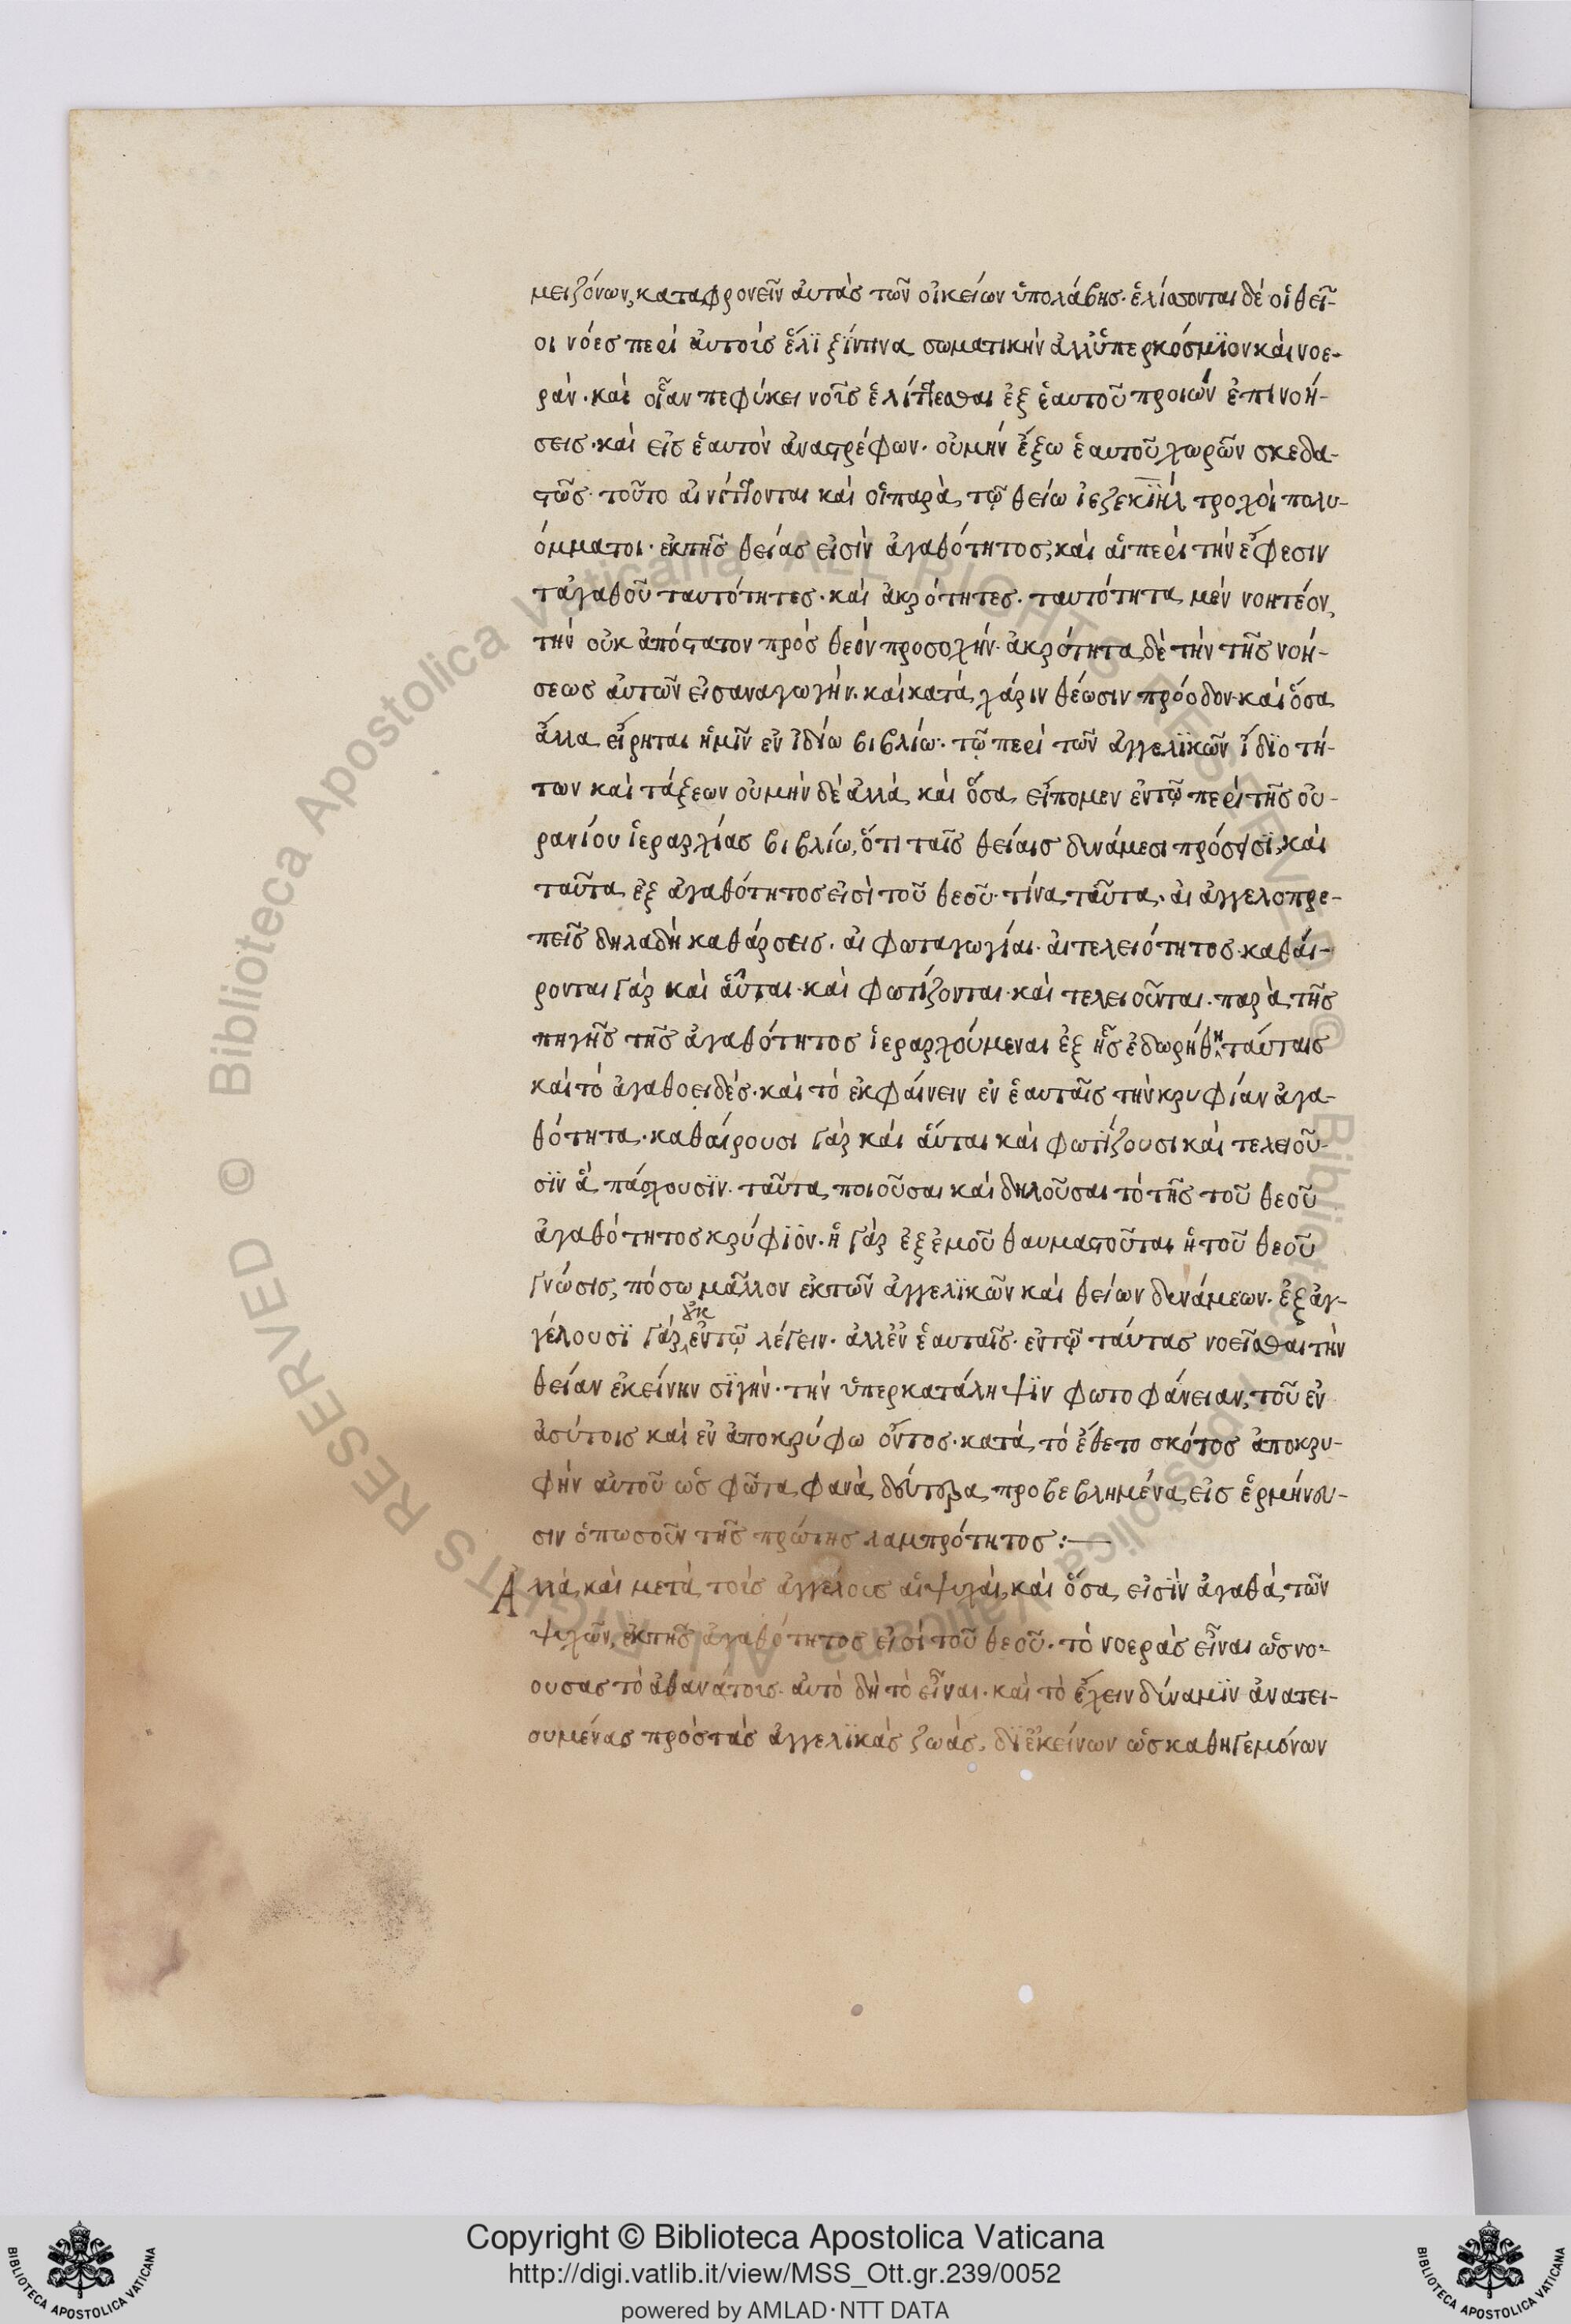 μειζόνων, καταφρονεῖν ἀυτὰσ τῶν οἰκείων ὑπολάβησ· ἑλίσσονται δὲ οἱ θεῖ-
οι νόεσ περὶ ἀυτοὺσ ἕλϊξϊν τινα σωματικὴν ἀλλ ὑπερκόσμϊον καὶ νοε-
ρὰν· καὶ οἵαν πεφύκει νοῦσ ἑλίττεσθαι ἐξ ἑαυτοῦ προιὼν ἐπινοή-
σεισ· καὶ εἰσ ἑαυτὸν ἀναστρέφων· οὐμὴν ἔξω ἑαυτοῦ χωρῶν σκεδα-
στῶσ· τοῦτο αἰνίττονται καὶ οἱ παρὰ τῷ θείω ἰεζεκϊὴλ τροχοὶ πολυ-
όμματοι· ἐκτῆσ θείασ εἰσὶν ἀγαθότητοσ, καὶ αἱ περὶ τὴν ἔφεσιν
τἀγαθοῦ ταυτότητεσ· καὶ ἀκρότητεσ· ταυτότητα μὲν νοητέον,
τὴν οὐκ ἀπόστατον πρὸσ θεὸν προσοχήν· ἀκρότητα δὲ τὴν τῆσ νοή-
σεωσ ἀυτῶν εἰσαναγωγήν· καὶ κατὰ χάριν θέωσιν πρόοδον· καὶ ὅσα
ἄλλα εἴρηται ἡμῖν ἐν ἰδίω βιβλίω· τῷ περὶ τῶν ἀγγελϊκῶν ἰδϊοτή-
των καὶ τάξεων οὐμὴν δὲ ἀλλὰ καὶ ὅσα εἴπομεν ἐντῷ περὶ τῆσ οὐ-
ρανίου ἱεραρχίασ βιβλίω, ὅτι ταῖσ θείαισ δυνάμεσι πρόσεϊσϊ, καὶ
ταῦτα ἐξ ἀγαθότητοσ εἰσὶ τοῦ θεοῦ· τίνα ταῦτα· ἁι ἀγγελοπρε-
πεῖσ δηλαδὴ καθάρσεισ· ἁι φωταγωγίαι· ἁι τελειότητοσ· καθάι-
ρονται γὰρ καὶ ἁῦται· καὶ φωτίζονται· καὶ τελειοῦνται· παρὰ τῆσ
πηγῆσ τῆσ ἀγαθότητοσ ἱεραρχούμεναι ἐξ ἧσ ἐδωρήθη ταύταισ
καὶ τὸ ἀγαθοειδέσ· καὶ τὸ ἐκφάινειν ἐν ἑαυταῖσ τὴν κρυφίαν ἀγα-
θότητα· καθαίρουσι γὰρ καὶ ἁύται καὶ φωτίζουσι καὶ τελειοῦ-
σϊν ἃ πάσχουσϊν· ταῦτα ποιοῦσαι καὶ δηλοῦσαι τὸ τῆσ τοῦ θεοῦ
ἀγαθότητοσ κρύφϊον· ἢ γὰρ ἐξ ἐμοῦ θαυμαστοῦται ἡ τοῦ θεοῦ
γνώσισ, πόσω μᾶλλον ἐκτῶν ἀγγελϊκῶν καὶ θείων δυνάμεων· ἐξἀγ-
γέλουσϊ γὰρ οὐκ ἐντῷ λέγειν· ἀλλἐν ἑαυταῖσ· ἐντῷ ταύτασ νοεῖσθαι τὴν
θείαν ἐκείνην σϊγὴν· τὴν ὑπερκατάληψϊν φωτοφάνειαν, τοῦ ἐν
ἀδύτοισ καὶ ἐν ἀποκρύφω ὄντοσ· κατὰ τὸ ἔθετο σκότοσ ἀποκρυ-
φὴν αὐτοῦ ὡσ φῶτα φανὰ δεύτερα προβεβλημένα εἰσ ἑρμήνευ-
σιν ὁπωσοῦν τῆσ πρώτησ λαμπρότητοσ:—
Αλλὰ καὶ μετὰ τοὺσ ἀγγέλουσ αἱ ψυχαὶ, καὶ ὅσα εἰσὶν ἀγαθὰ τῶν
ψυχῶν, ἐκτῆσ ἀγαθότητοσ εἰσὶ τοῦ θεοῦ· τὸ νοερὰσ εἶναι ὡσ νο-
ουσασ τὸ ἀθανάτουσ· αὐτὸ δὴ τὸ εἶναι· καὶ τὸ ἔχειν δύναμϊν ἀνατει-
ουμένασ πρὸσ τὰσ ἀγγελϊκὰσ ζωάσ, δϊἐκείνων ὡσ καθηγεμόνων
Copyright © Biblioteca Apostolica Vaticana
http://digi.vatlib.it/view/MSS_Ott.gr.239/0052
powered by AMLAD·NTT DATA